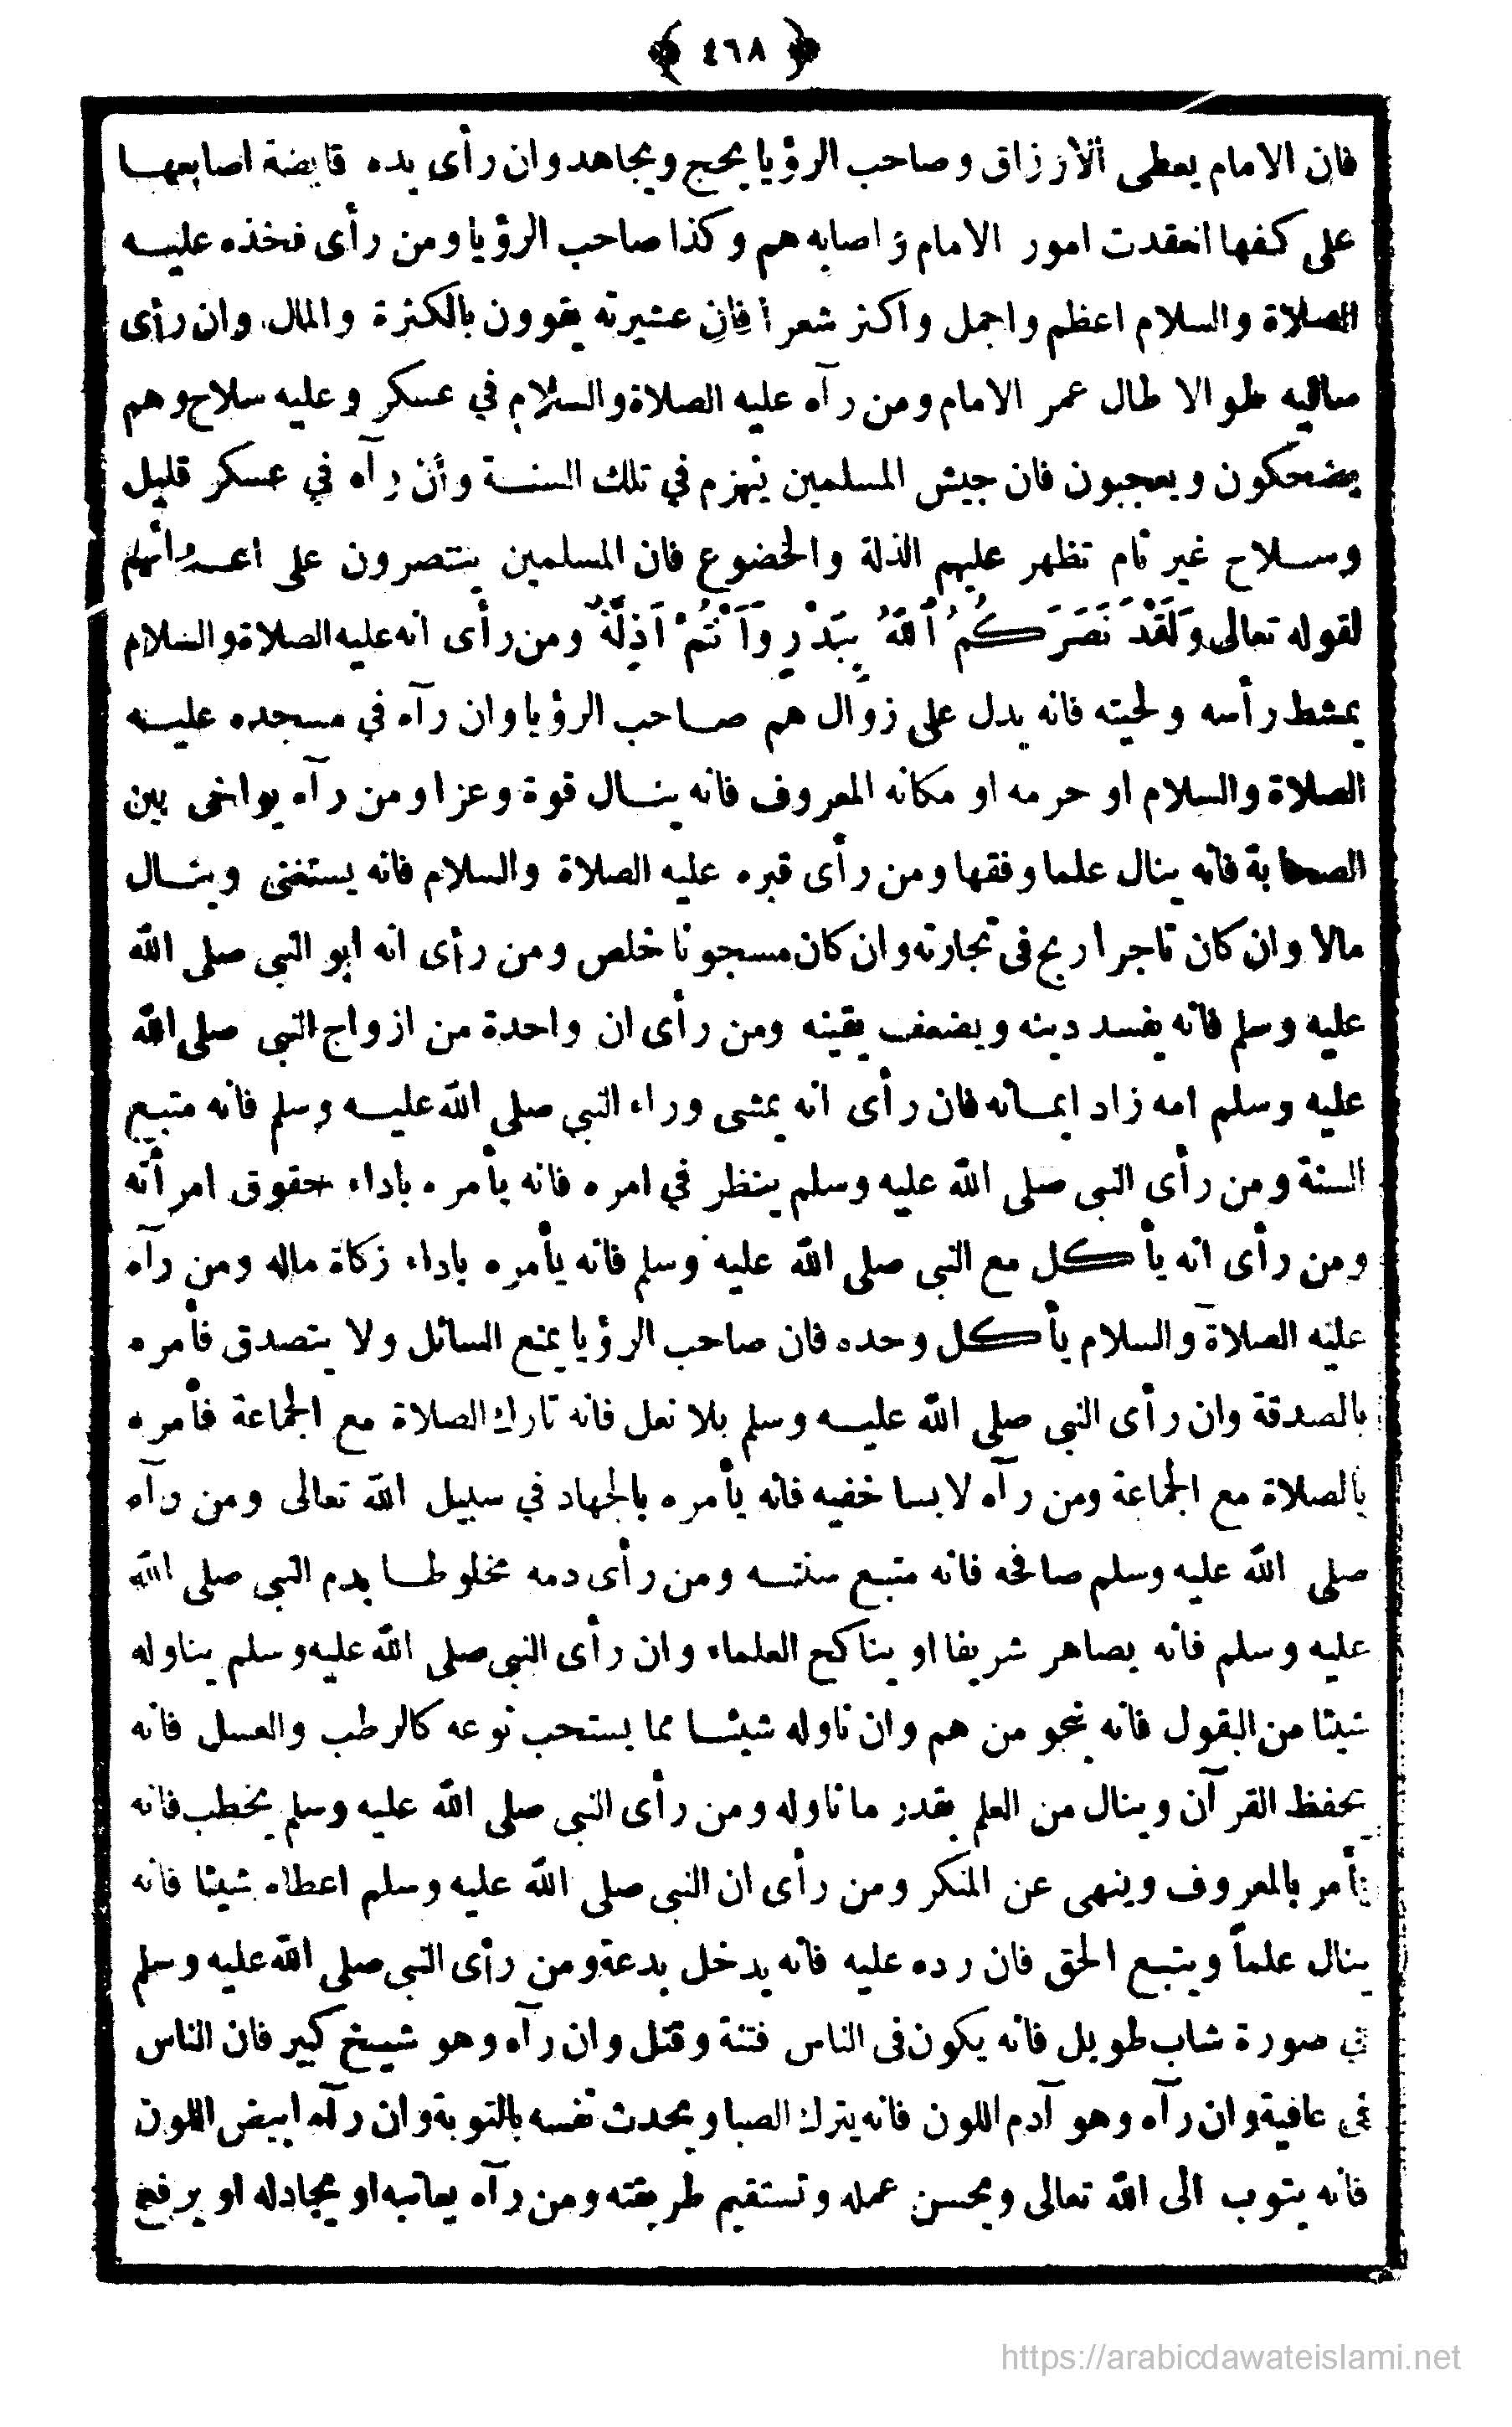 ﴿ ٤٦٨ ﴾
فان الامام يعطى الارزاق وصاحب الرؤيا يحج ويجاهد وان رأى يده قابضة اصابعها
على كفها انعقدت امور الامام واصابه هم وكذا صاحب الرؤيا ومن رأى فخذه عليه
الصلاة والسلام اعظم واجمل واكثر شعرا فان عشيرته يقوون بالكثرة والمال وان رأى
ساقيه طوالا طال عمر الامام ومن رآه عليه الصلاة والسلام في عسكر وعليه سلاح وهم
يضحكون ويعجبون فان جيش المسلمين ينهزم في تلك السنة وأن رآه في عسكر قليل
وسلاح غير تام تظهر عليهم الذلة والخضوع فان المسلمين ينتصرون على اعدائهم
لقوله تعالى وَلَقَدْ نَصَرَكُمُ ٱللَّهُ بِبَدْرٍ وَاَنْتُمْ اَذِلَّةٌ ومن رأى انه عليه الصلاة والسلام
يمشط رأسه ولحيته فانه يدل على زوال هم صاحب الرؤيا وان رآه في مسجده عليه
الصلاة والسلام او حرمه او مكانه المعروف فانه ينال قوة وعزا ومن رآه يواخى بين
الصحابة فانه ينال علما وفقها ومن رأى قبره عليه الصلاة والسلام فانه يستغنى وينال
مالا وان كان تاجرا ربح فى تجارته وان كان مسجونا خلص ومن رأى انه ابو النبي صلى الله
عليه وسلم فانه يفسد دينه ويضعف يقينه ومن رأى ان واحدة من ازواج النبي صلى الله
عليه وسلم امه زاد ايمانه فان رأى انه يمشى وراء النبي صلى الله عليه وسلم فانه متبع
السنة ومن رأى النبي صلى الله عليه وسلم ينظر في امره فانه يأمره باداء حقوق امرأته
ومن رأى انه يأكل مع النبي صلى الله عليه وسلم فانه يأمره باداء زكاة ماله ومن رآه
عليه الصلاة والسلام يأكل وحده فان صاحب الرؤيا يمنع السائل ولا يتصدق فأمره
بالصدقة وان رأى النبي صلى الله عليه وسلم بلا نعل فانه تارك الصلاة مع الجماعة فأمره
بالصلاة مع الجماعة ومن رآه لابسا خفيه فانه يأمره بالجهاد في سبيل الله تعالى ومن رآه
صلى الله عليه وسلم صافحه فانه متبع سنته ومن رأى دمه مخلوطا بدم النبي صلى الله
عليه وسلم فانه يصاهر شريفا او يناكح العلماء وان رأى النبي صلى الله عليه وسلم يناوله
شيئا من البقول فانه ينجو من هم وان ناوله شيئا مما يستحب نوعه كالرطب والعسل فانه
يحفظ القرآن وينال من العلم بقدر ما ناوله ومن رأى النبي صلى الله عليه وسلم يخطب فانه
يأمر بالمعروف وينهى عن المنكر ومن رأى ان النبي صلى الله عليه وسلم اعطاه شيئا فانه
ينال علماً ويتبع الحق فان رده عليه فانه يدخل بدعة ومن رأى النبي صلى الله عليه وسلم
في صورة شاب طويل فانه يكون فى الناس فتنة وقتل وان رآه وهو شيخ كبير فان الناس
في عافية وان رآه وهو آدم اللون فانه يترك الصبا ويحدث نفسه بالتوبة وان رآه ابيض اللون
فانه يتوب الى الله تعالى ويحسن عمله وتستقيم طريقته ومن رآه يعاتبه او يجادله او يرفع
https://arabicdawateislami.net